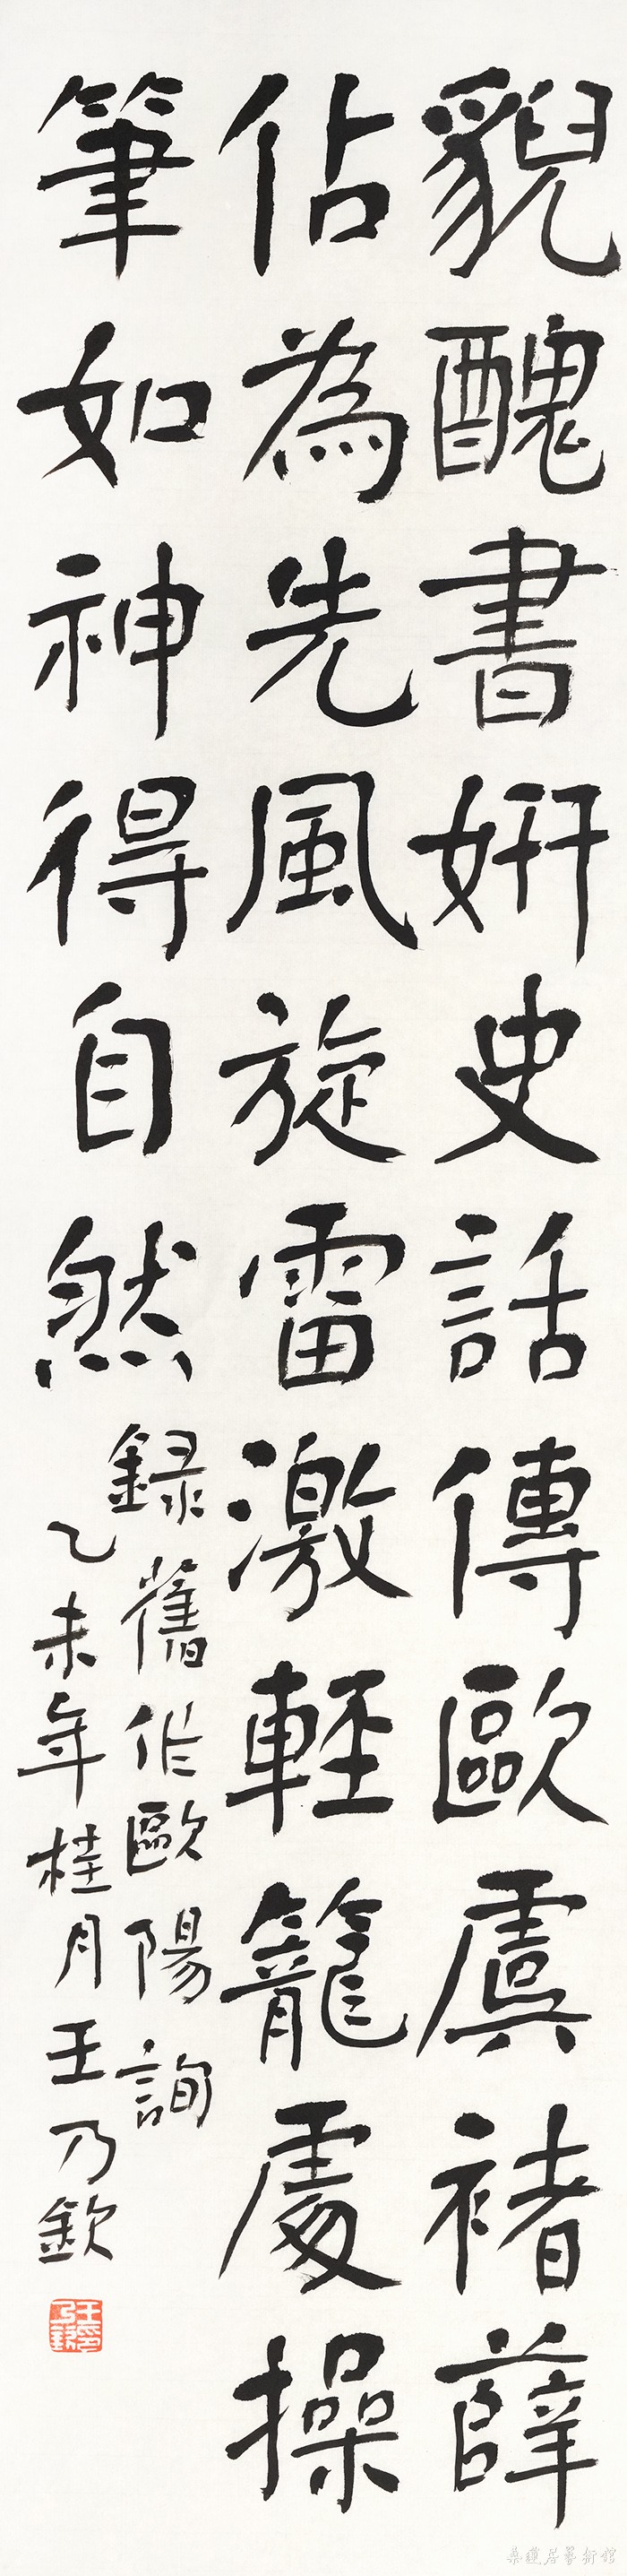 貎醜書妍史話傳歐虞褚薛
佔為先風旋雷激輕籠處操
筆如神得自然
録舊作歐陽詢
乙未年桂月王乃欽
桑蓮居藝術館